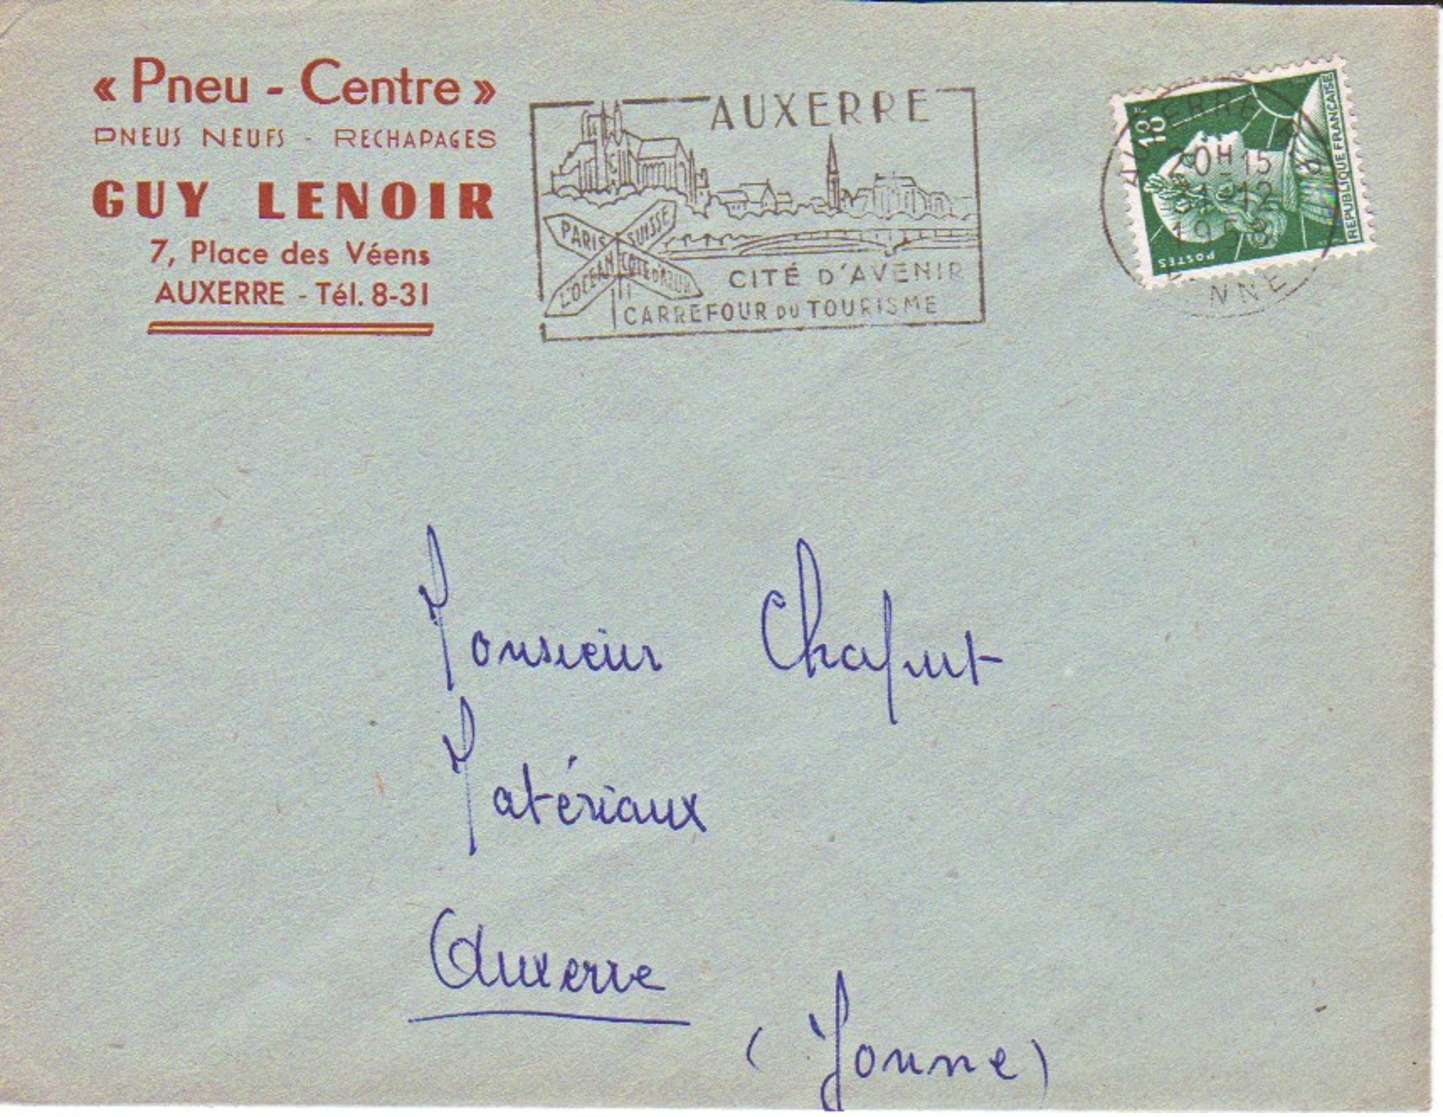 « Pneu - Centre »
PNEUS NEUFS - RECHAPAGES
GUY LENOIR
7, Place des Véens
AUXERRE - Tél. 8-31
AUXERRE
PARIS SUISSE
L'OCEAN CÔTE D'AZUR
CITÉ D'AVENIR
CARREFOUR DU TOURISME
18F
20H15
-12
POSTES
REPUBLIQUE FRANÇAISE
Monsieur Chaput
Matériaux
Auxerre
(Yonne)